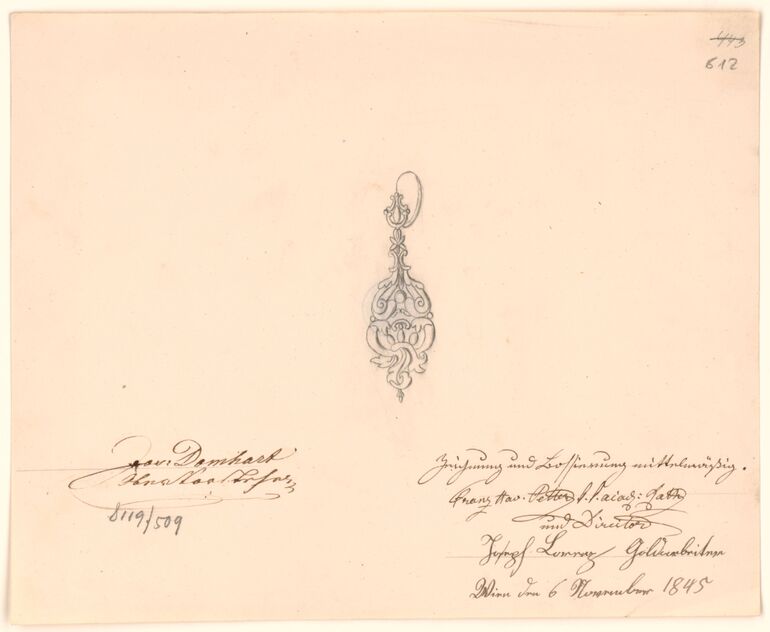 443
612
Jos: Domhart
8119/509
Zeichnung und Bossierung mittelmäßig.
Franz Xav. Petter k. k. acad: Rath
und Director
Joseph Lorenz Goldarbeiter
Wien den 6 November 1845